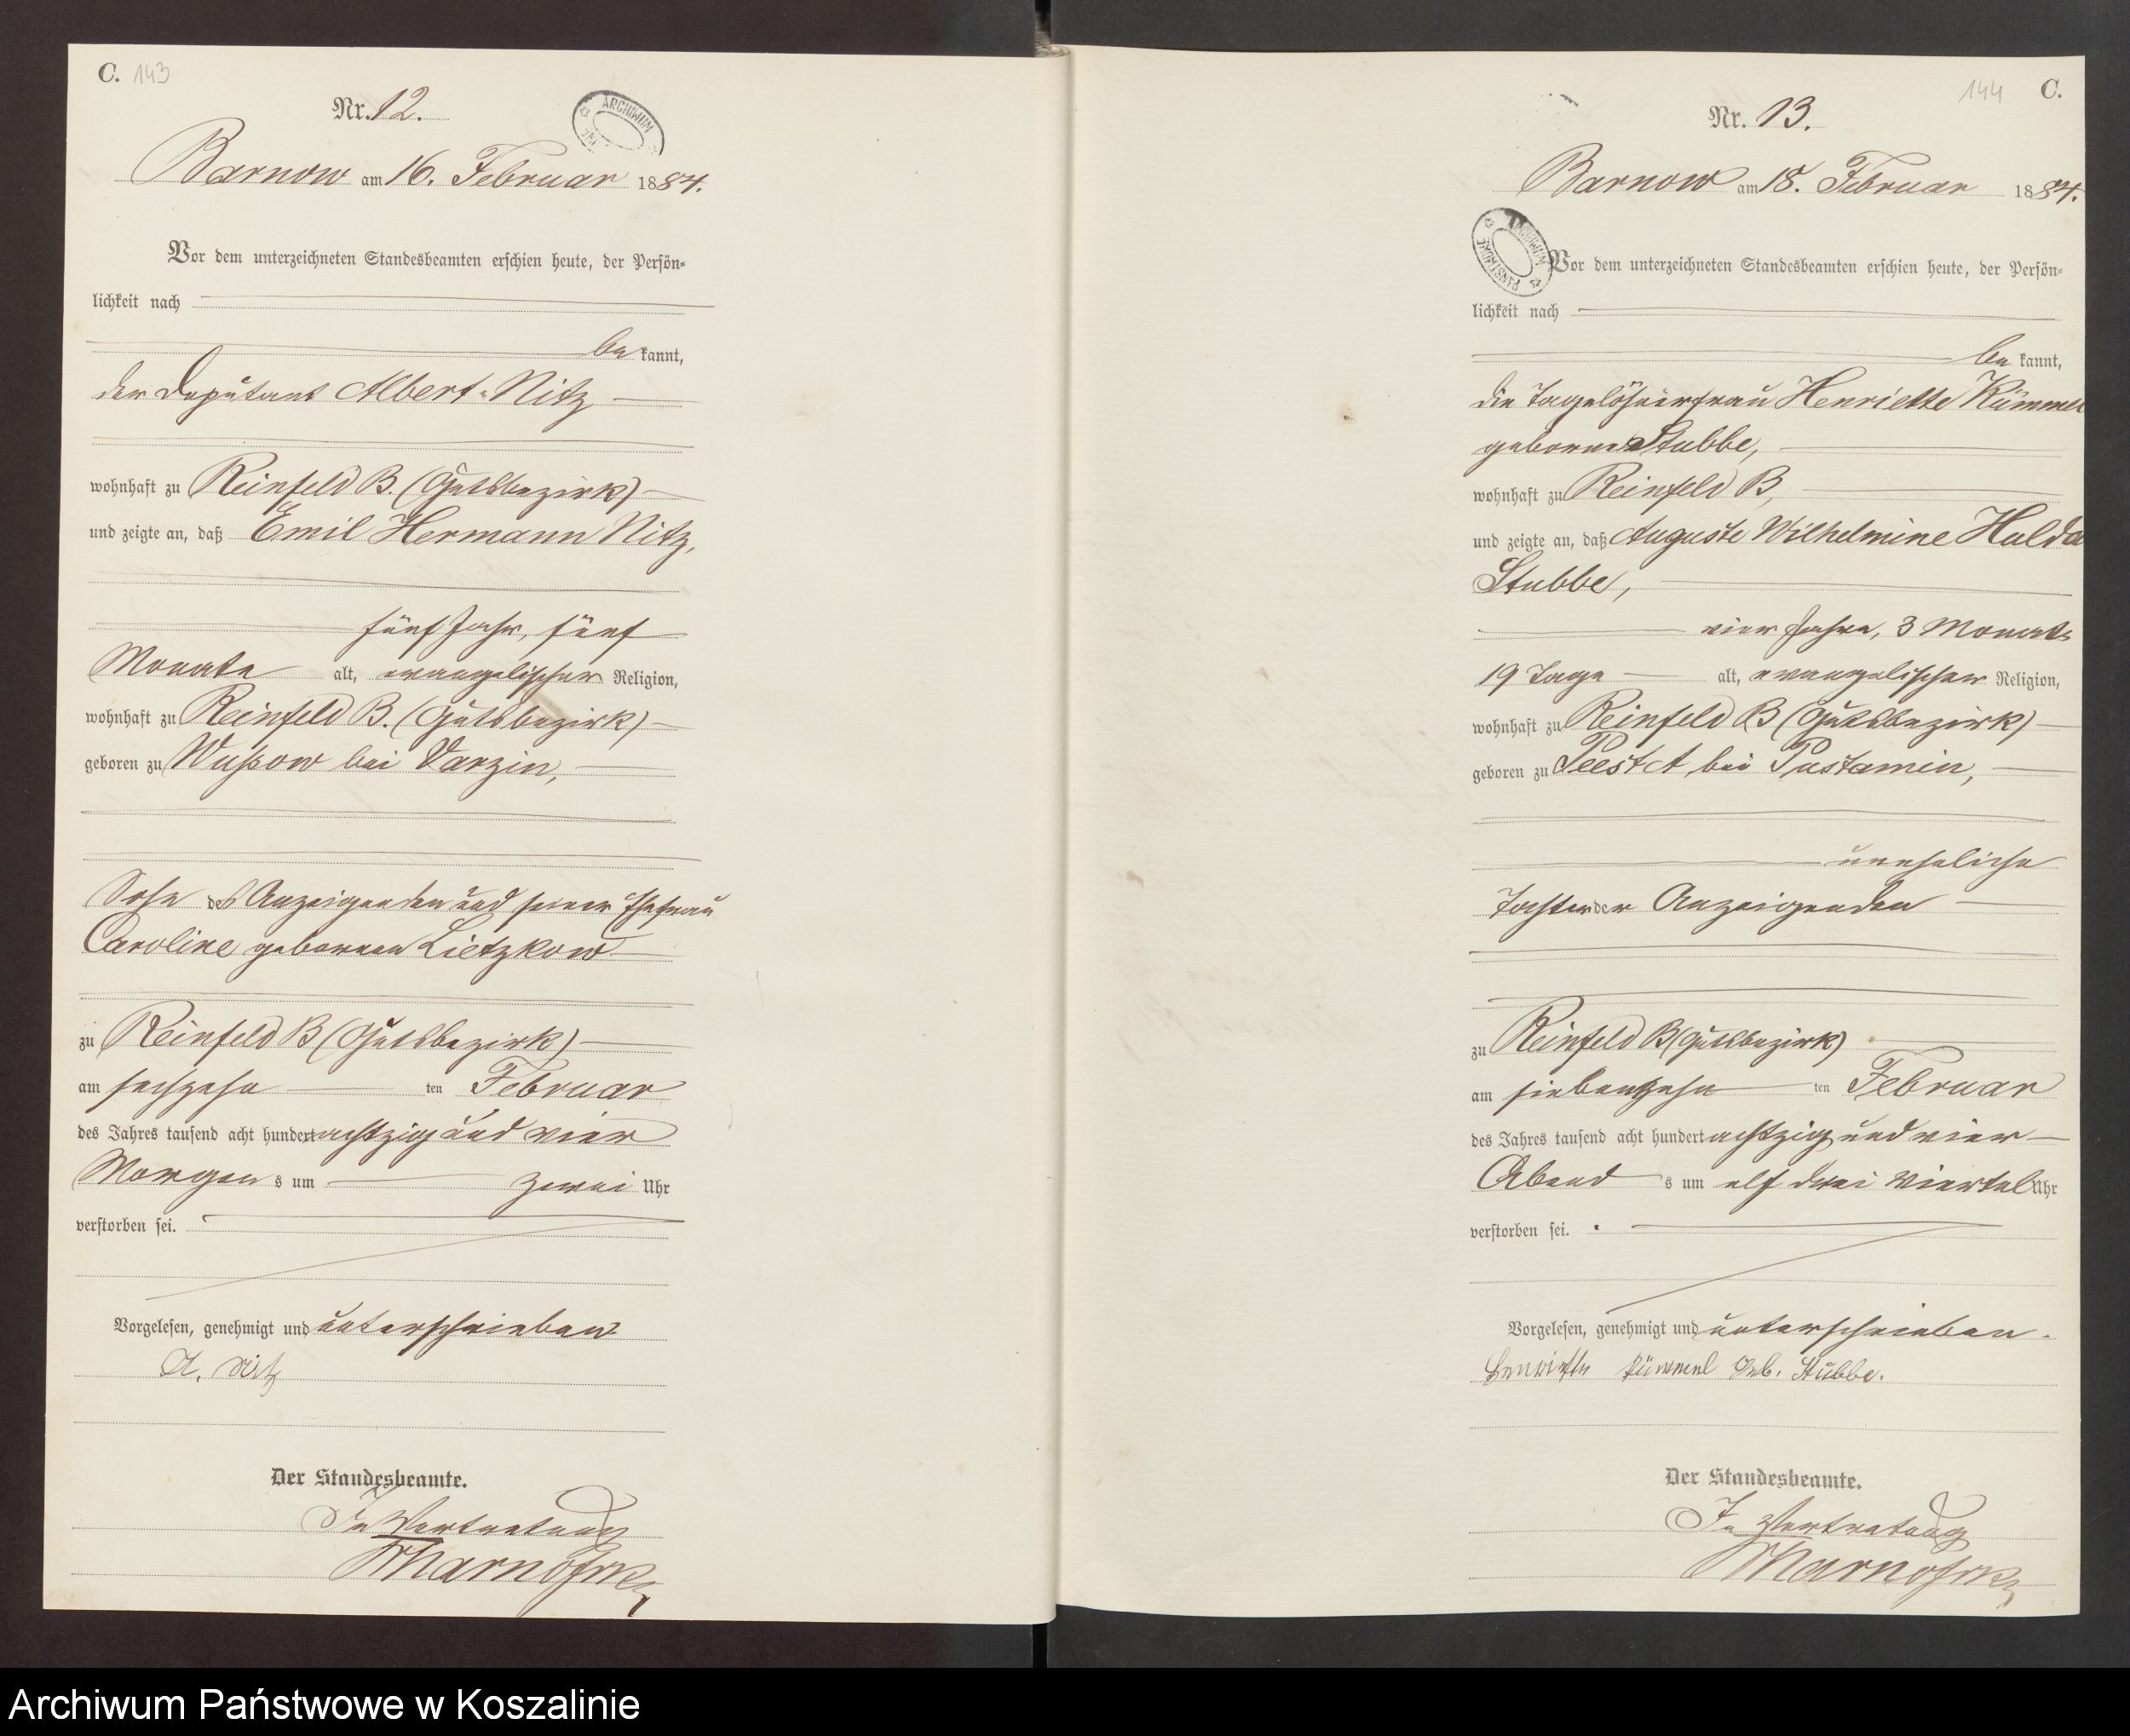 C. 143
Nr. 12.
ARCHIWUM
Barnow am 16. Februar 1884.
Vor dem unterzeichneten Standesbeamten erschien heute, der Persön-
lichkeit nach
be kannt,
der Deputant Albert Nitz
wohnhaft zu Reinfeld B. (Gutsbezirk)
und zeigte an, daß Emil Hermann Nitz,
fünf Jahr, fünf
Monate alt, evangelischer Religion,
wohnhaft zu Reinfeld B. (Gutsbezirk)
geboren zu Wussow bei Varzin,
Sohn des Anzeigenden und seiner Ehefrau
Caroline geborenen Lietzkow
zu Reinfeld B (Gutsbezirk)
am sechzehn ten Februar
des Jahres tausend acht hundert achtzig und vier
Morgen s um zwei Uhr
verstorben sei.
Vorgelesen, genehmigt und unterschrieben
A. Nitz
Der Standesbeamte.
In Vertretung
144 C.
Nr. 13.
Barnow am 18. Februar 1884.
ARCHIWUM PAŃSTWOWE
Vor dem unterzeichneten Standesbeamten erschien heute, der Persön-
lichkeit nach
be kannt,
die Tagelöhnerfrau Henriette Kümmel
geborene Stubbe,
wohnhaft zu Reinfeld B,
und zeigte an, daß Auguste Wilhelmine Hulda
Stubbe,
vier Jahre, 3 Monate
19 Tage alt, evangelischer Religion,
wohnhaft zu Reinfeld B (Gutsbezirk)
geboren zu Peest A bei Pustamin,
uneheliche
Tochter der Anzeigenden
zu Reinfeld B (Gutsbezirk)
am siebenzehn ten Februar
des Jahres tausend acht hundert achtzig und vier
Abend s um elf drei Viertel Uhr
verstorben sei.
Vorgelesen, genehmigt und unterschrieben.
Henriette Kümmel Geb. Stubbe.
Der Standesbeamte.
In Vertretung
Archiwum Państwowe w Koszalinie